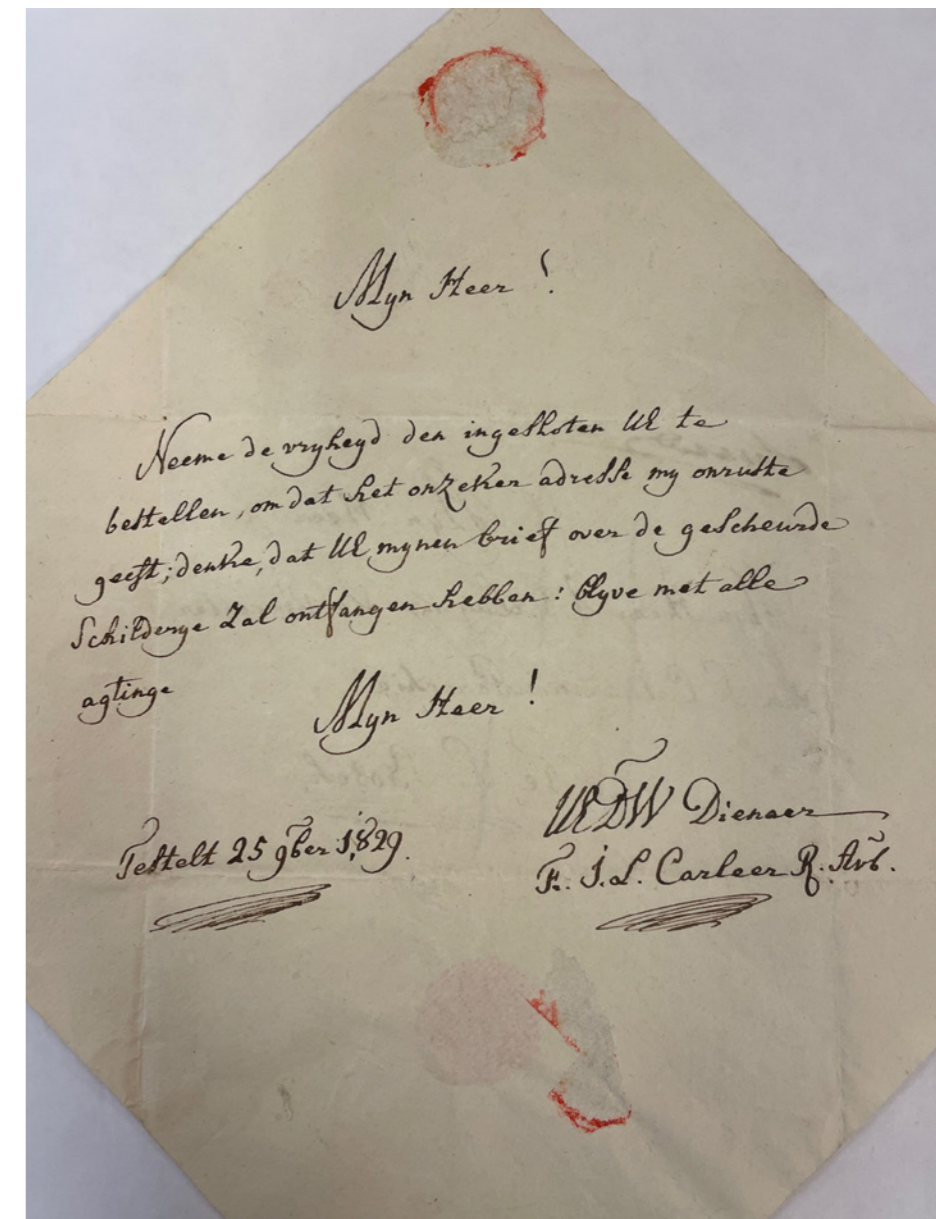 Myn Heer!
Neeme de vryheyd den ingesloten UE te
bestellen, om dat het onzeker adresse my onruste
geeft; denke, dat UE mynen brief over de gescheurde
Schilderye Zal ontfangen hebben: blyve met alle
agtinge
Myn Heer!
UEDW Dienaer
Testelt 25 9ber 1829.
F. J. L. Carleer R. Avb.